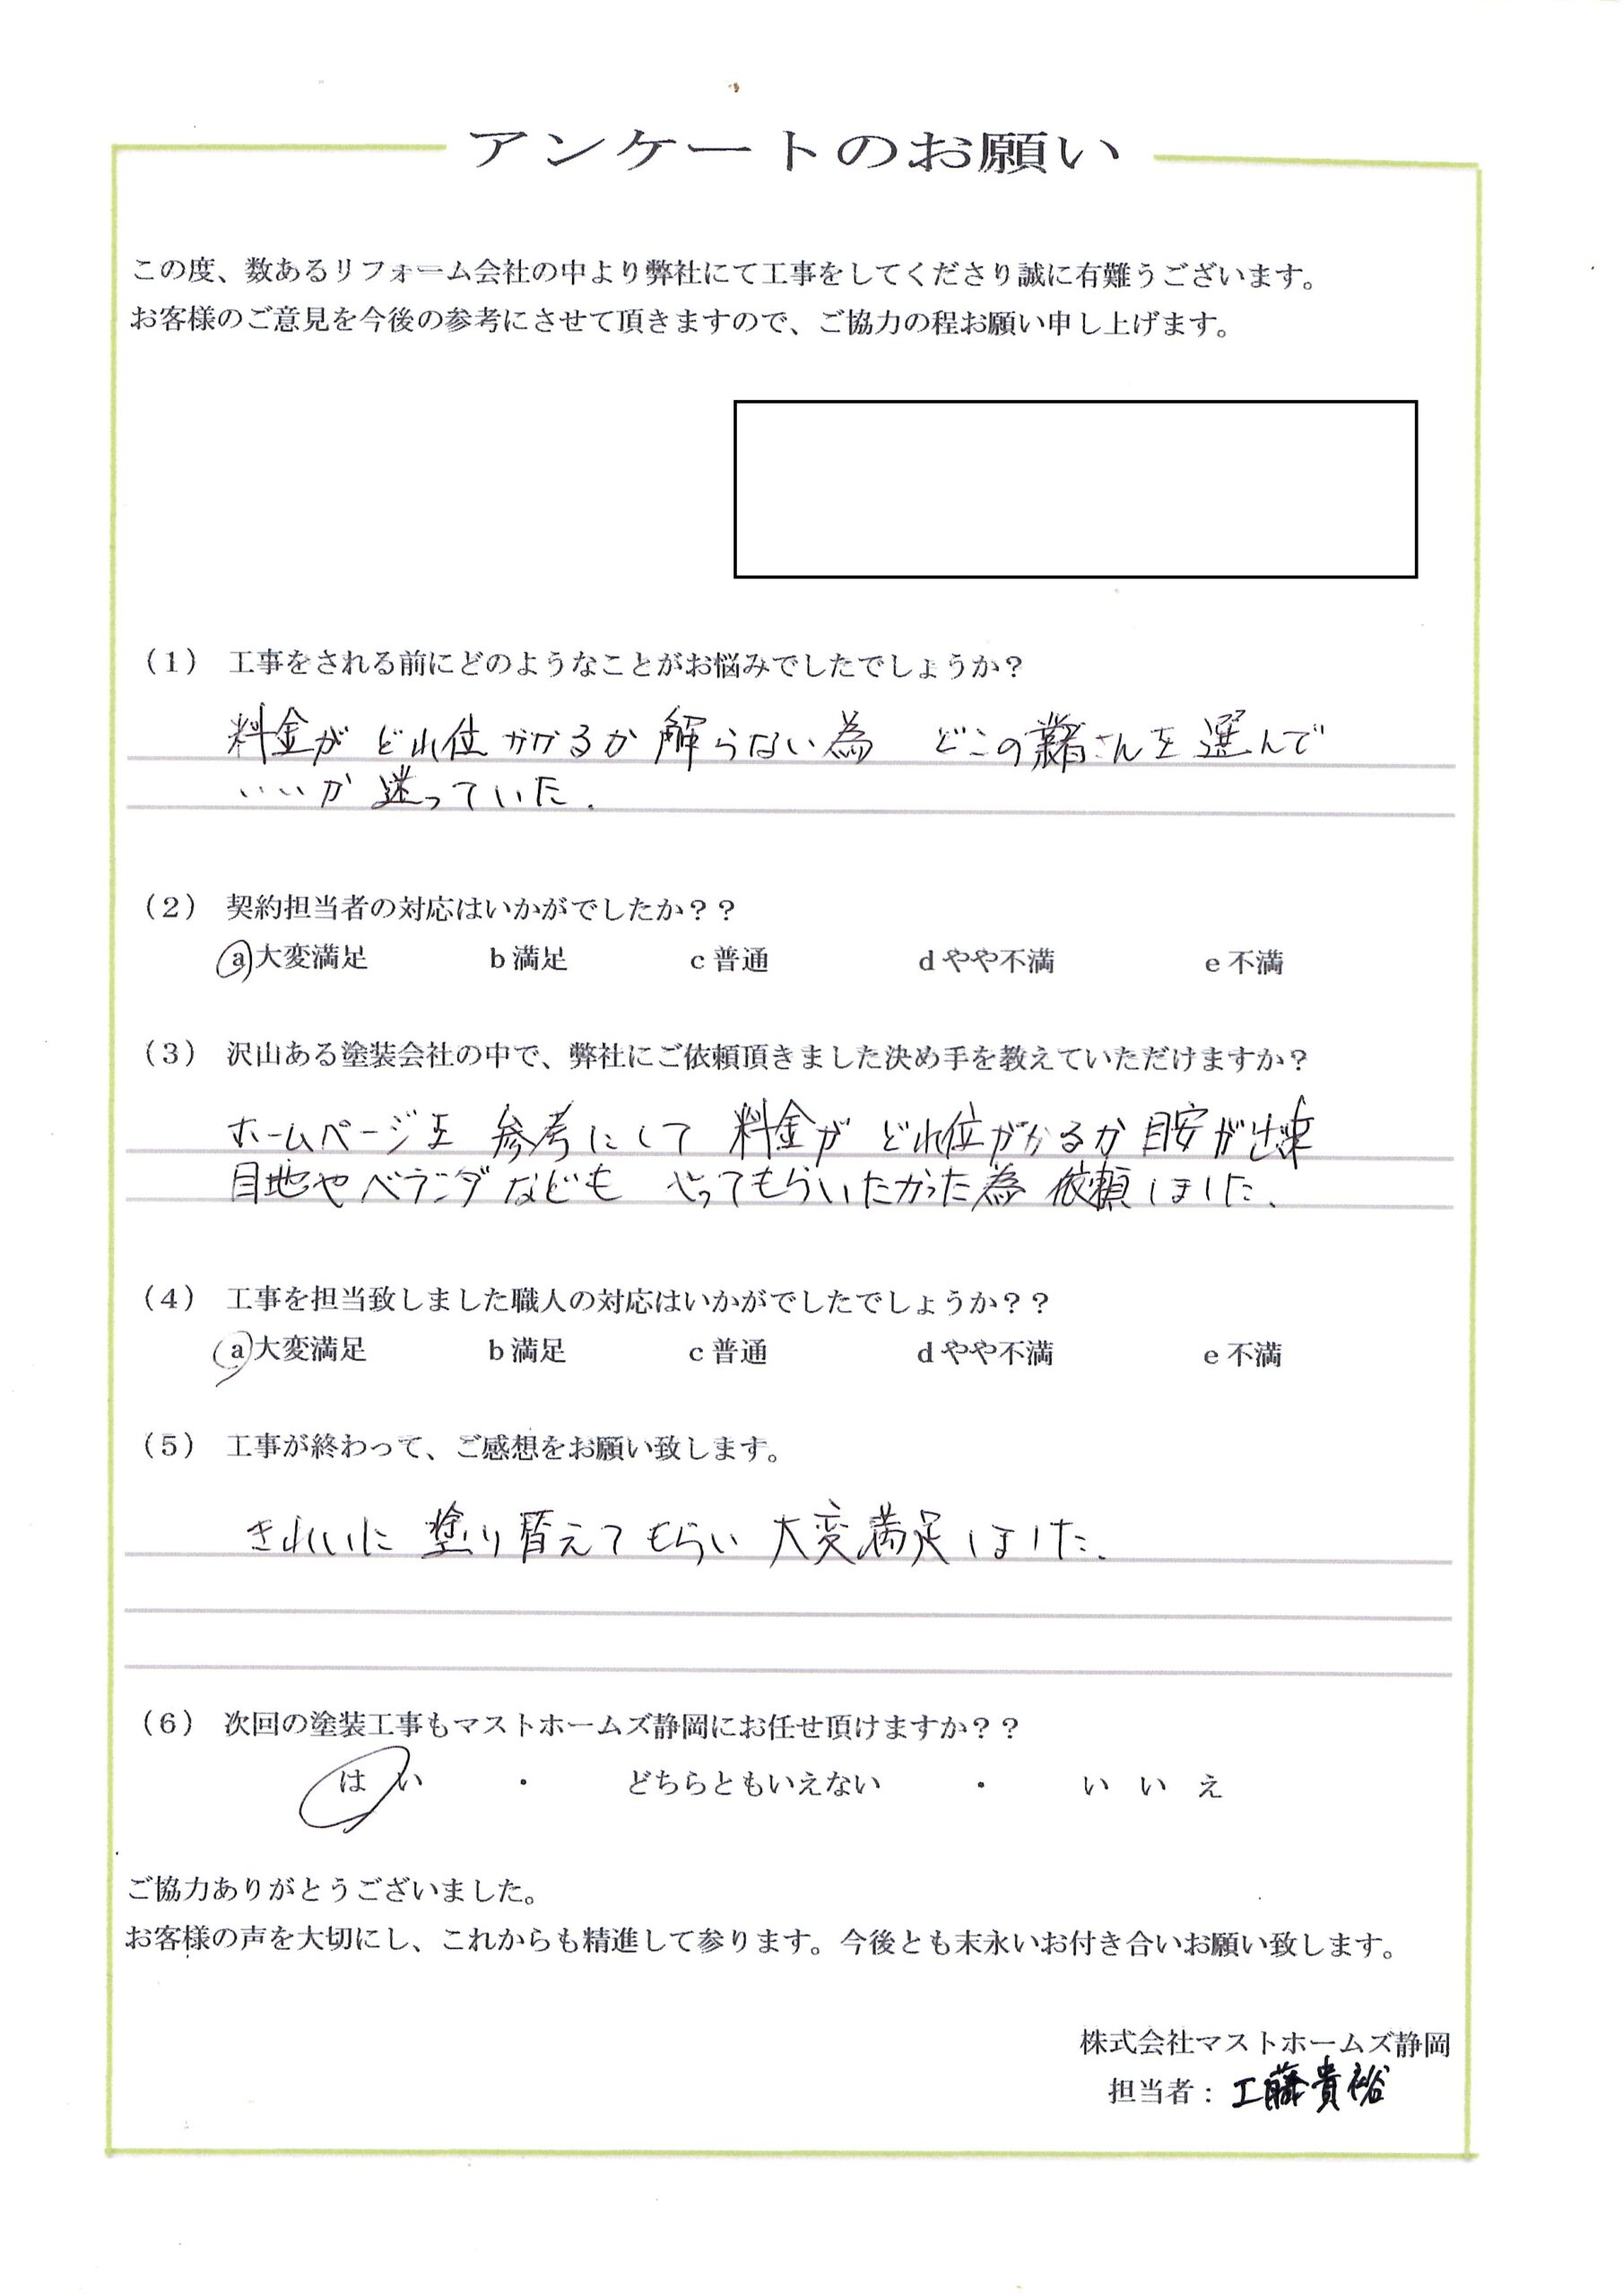 アンケートのお願い
この度、数あるリフォーム会社の中より弊社にて工事をしてくださり誠に有難うございます。
お客様のご意見を今後の参考にさせて頂きますので、ご協力の程お願い申し上げます。
（1） 工事をされる前にどのようなことがお悩みでしたでしょうか？
料金が どれ位かかるか 解らない為 どこの業者さんを選んで
いいか 迷っていた.
（2） 契約担当者の対応はいかがでしたか？？
a 大変満足 b 満足 c 普通 d やや不満 e 不満
（3） 沢山ある塗装会社の中で、弊社にご依頼頂きました決め手を教えていただけますか？
ホームページを 参考にして 料金が どれ位かかるか 目安が出来
目地やベランダなども やってもらいたかった為 依頼しました.
（4） 工事を担当致しました職人の対応はいかがでしたでしょうか？？
a 大変満足 b 満足 c 普通 d やや不満 e 不満
（5） 工事が終わって、ご感想をお願い致します。
きれいに 塗り替えてもらい 大変満足しました.
（6） 次回の塗装工事もマストホームズ静岡にお任せ頂けますか？？
はい ・ どちらともいえない ・ いいえ
ご協力ありがとうございました。
お客様の声を大切にし、これからも精進して参ります。今後とも末永いお付き合いお願い致します。
株式会社マストホームズ静岡
担当者：工藤貴裕